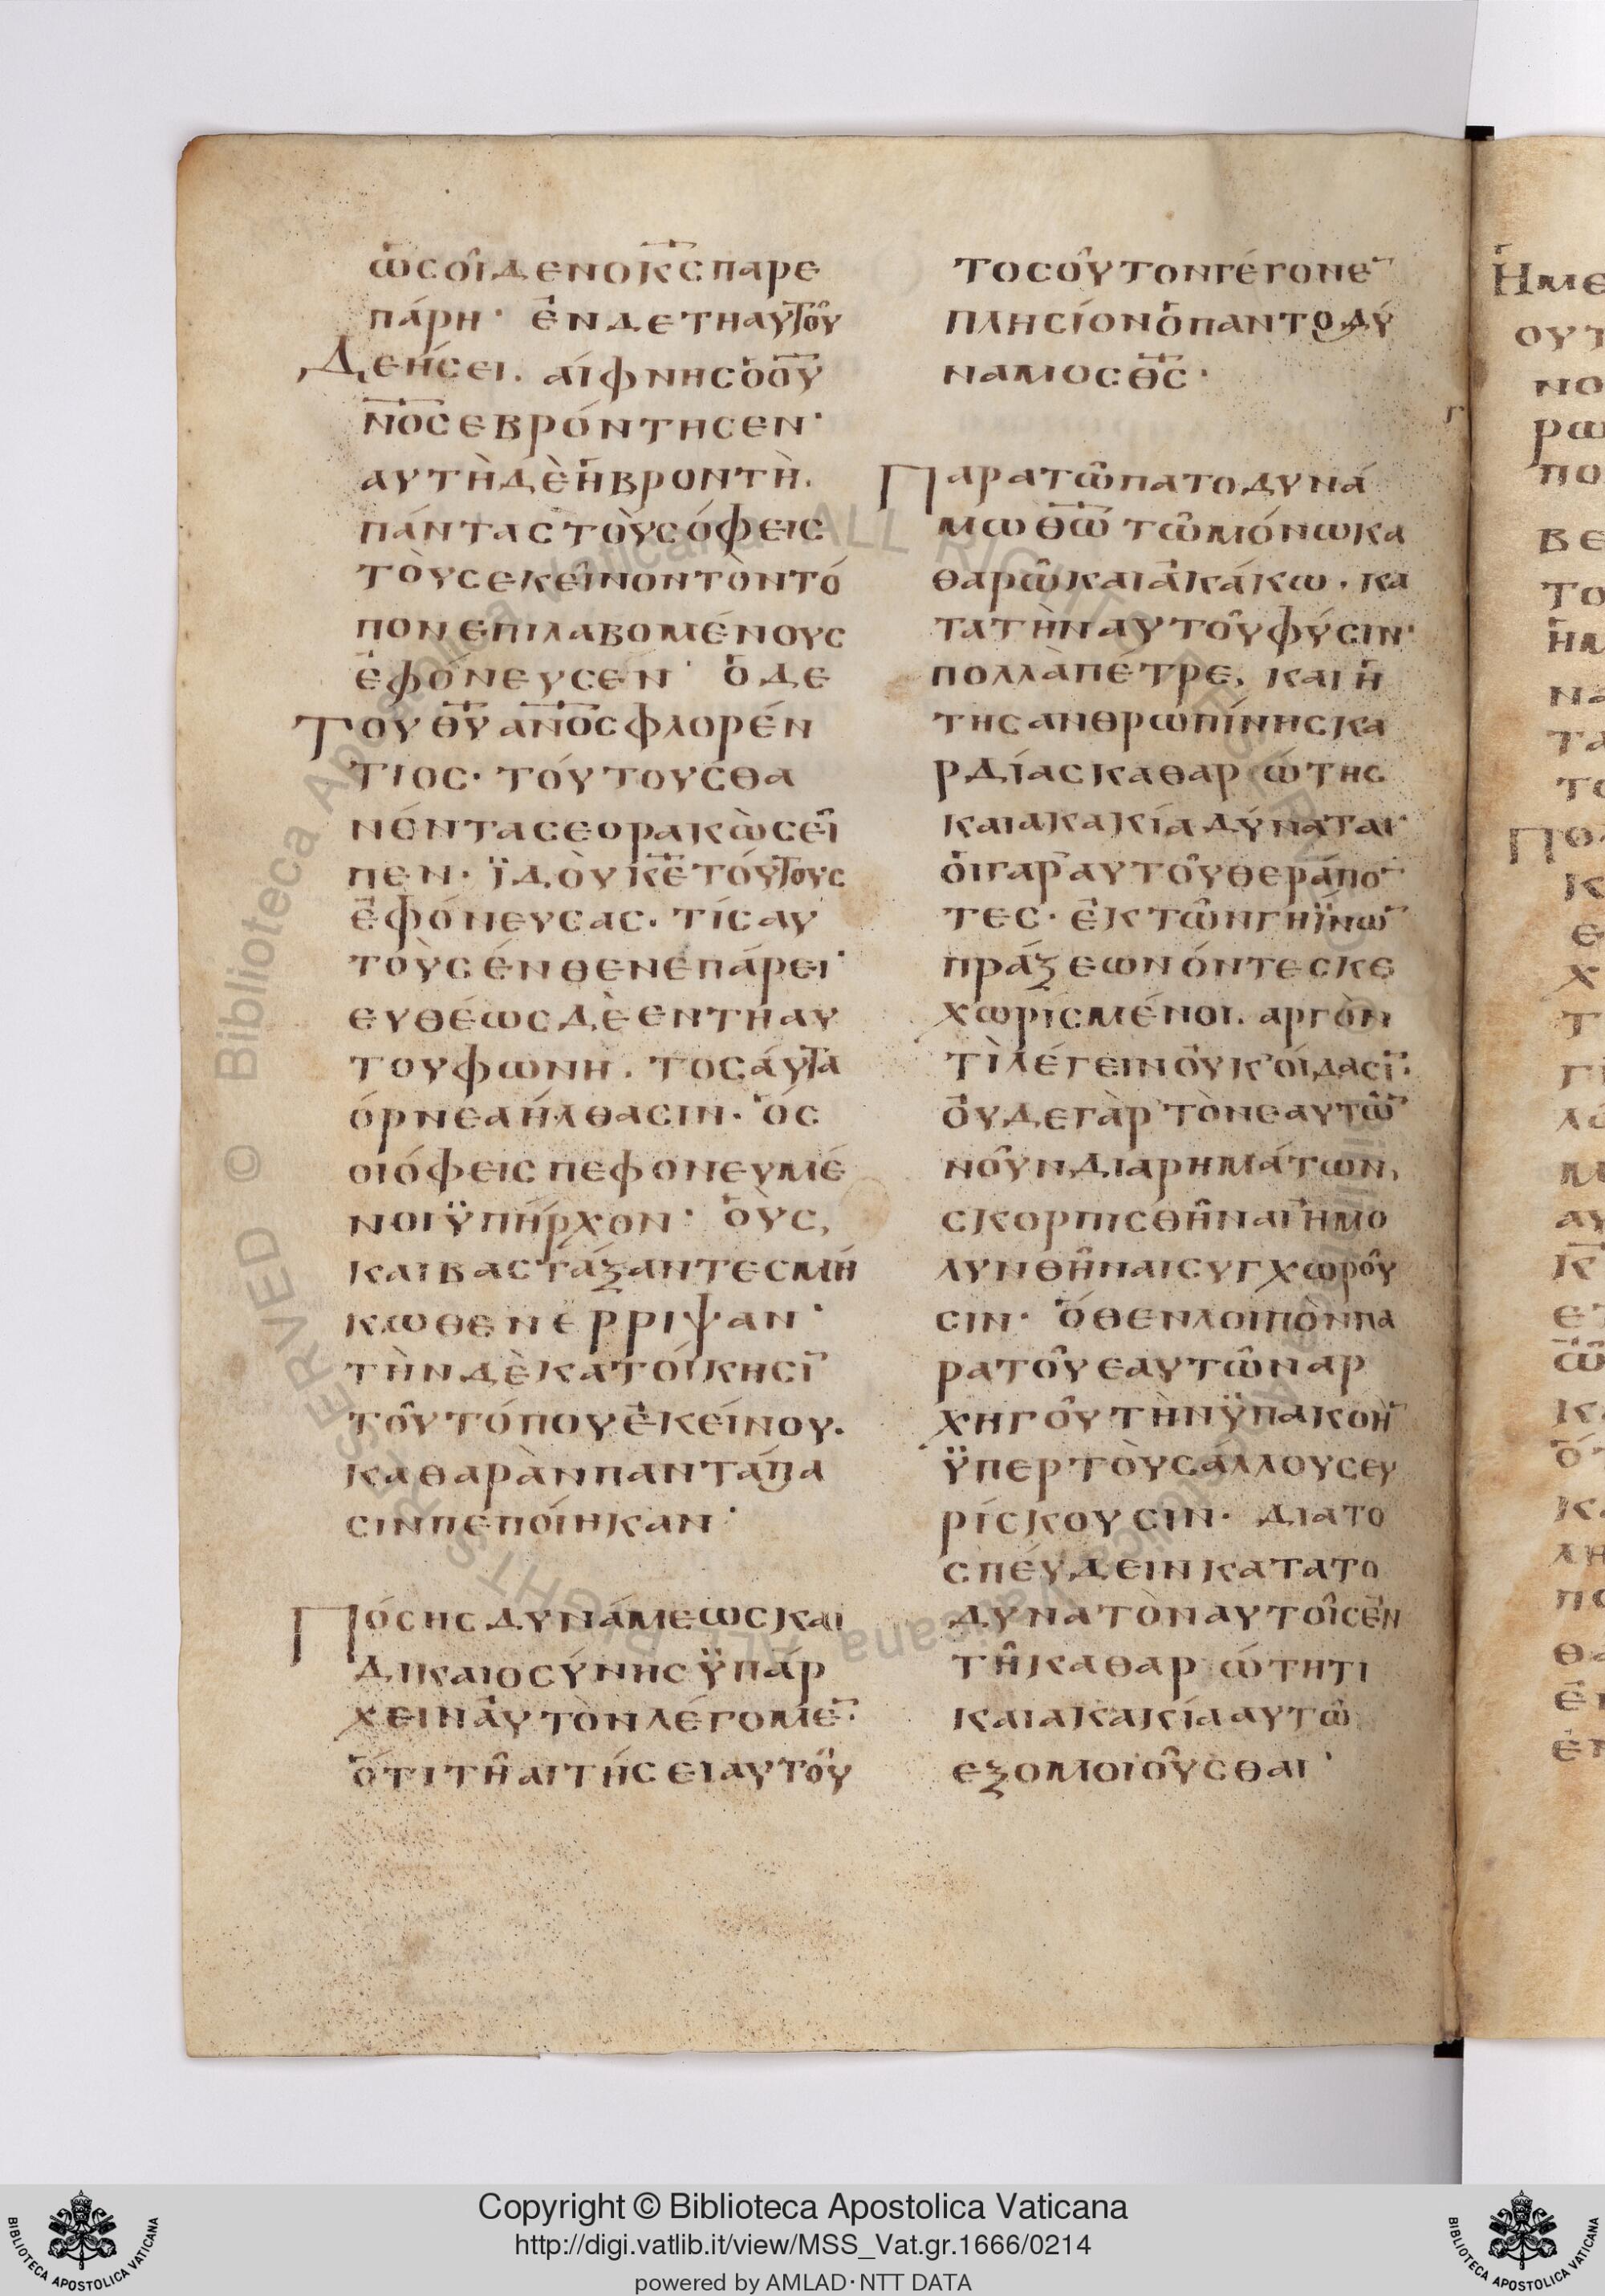 ὡσοῖδενοκ̅ς̅παρε
πάρη· ἐνδετηαυτοῦ
Δεήσει. αἴφνησὁο̅υ̅
ν̅ο̅ςεβρόντησεν·
αυτὴδὲἡβροντὴ.
πάνταςτοὺςόφεις
τοὺςεκεῖνοντὸντό
πονεπιλαβομένους
ἐφόνευσέν· ὁδε
Τουθ̅υ̅α̅ν̅ο̅ςφλορέν
τιος· τούτουςθα
νένταςεορακὼςεῖ
πεν· ϊδοὺκ̅ε̅τούτους
ἐφόνευσας. τίςαυ
τοὺςένθενἐπάρει·
ευθέωςδὲεντηαυ
τουφωνη. τοσάυτα
όρνεαήλθασιν· ὅς
οιόφειςπεφονευμέ
νοιϋπήρχον· ὁὺς,
καιβαστάξαντεςμή
κωθενέρριψαν·
τὴνδὲκατοίκησῑ
τοῦτόπουἐκείνου.
καθαρὰνπαντάπα
σινπεποίηκαν·
Πόσηςδυνάμεωςκαι
δικαιοσύνηςϋπάρ
χεινἀυτὸνλέγομε̅·
ὅτιτῆαιτήσειαυτοῦ
τοσοῦτονγέγονε̅
πλησίονὁπαντοδύ
ναμοςθ̅ς̅·
Παρατῶπατοδυνά
μωθ̅ω̅τῶμόνωκα
θαρῶκαιἀκάκω· κα
τατὴναυτοῦφύσιν·
πολλὰπέτρε, καιἡ
τηςανθρωπίνηςκα
ρδίαςκαθαρώτης
καιακακίαδύναται·
ὁιγαραυτοῦθεράπο̅
τες· ἐκτῶνγηΐνω̅
πράξεωνόντεςκε
χωρισμένοι. αργὸν
τὶλέγεινοὐκοίδασῑ·
οὐδεγὰρτὸνεαυτῶ̅
νοῦνδιαρημάτων,
σκορπισθῆναιἠμο
λυνθῆναισυγχωροῦ
σιν· ὅθενλοιπὸνπα
ρατοῦεαυτῶναρ
χηγοῦτὴνϋπακοὴ̅
ϋπερτοὺςάλλουςευ
ρίσκουσιν· διατο
σπεύδεινκατατο
δυνατὸναυτοῖςἐν
τῆκαθαρώτητι
καιακακίααυτῶ
εξομοιοῦσθαι·
Ἡμε
ουτ
νο
ρω
πο
βε
το
ἡμ
να
τα
το
Πολ
κ
ε
χ
τ
Biblioteca Apostolica Vaticana ALL RIGHTS RESERVED ©
Copyright © Biblioteca Apostolica Vaticana
http://digi.vatlib.it/view/MSS_Vat.gr.1666/0214
powered by AMLAD·NTT DATA
BIBLIOTECA APOSTOLICA VATICANA
BIBLIOTECA APOSTOLICA VATICANA